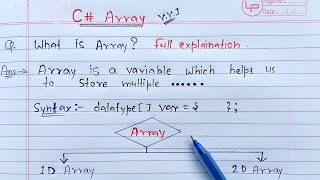 C# Array V.V.I
Q. What is Array? Full explaination.
Ans → Array is a variable which helps us
to store multiple ......
Syntax:- datatype[] var = { };
Array
1D Array 2D Array